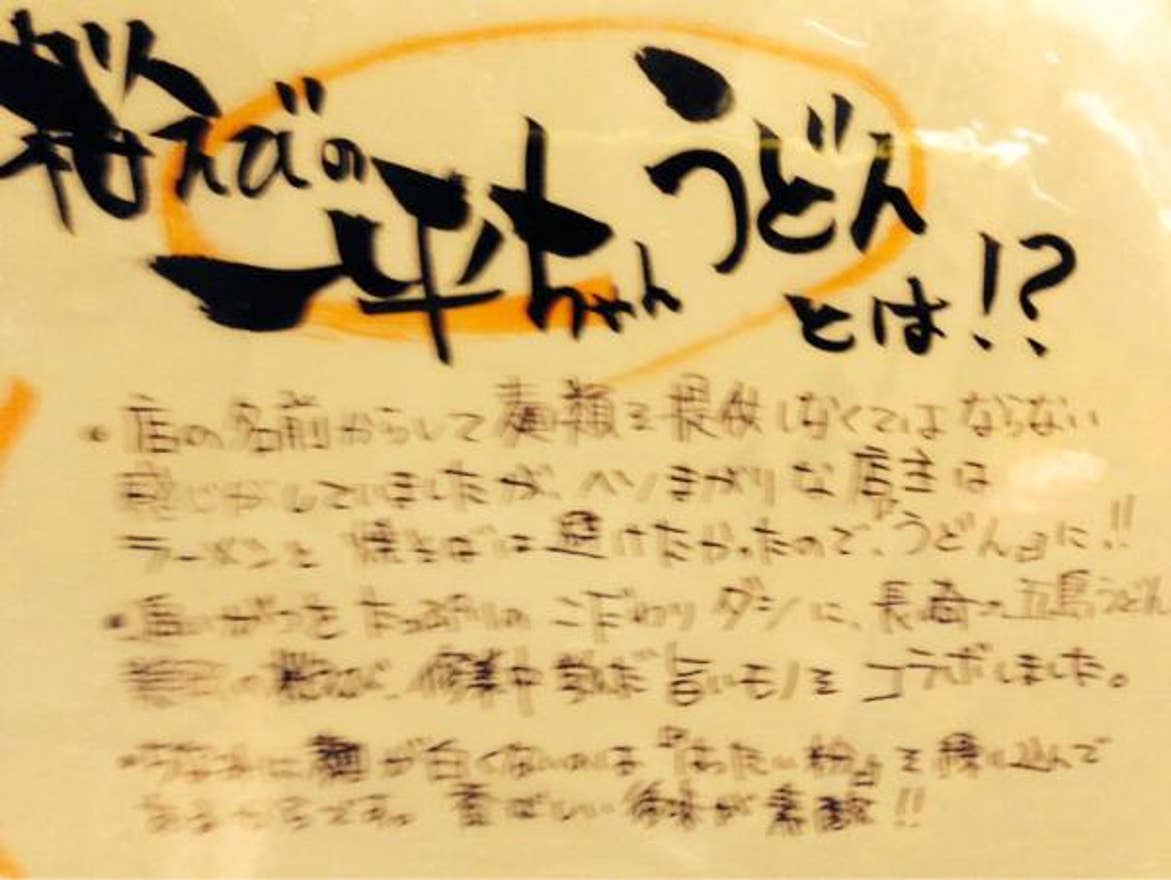 桜えびの
一平ちゃん うどん
とは!?
・店の名前からして麺類を提供しなくてはならない
感じがしていましたが、ヘソまがりな店主は
ラーメンと焼きそばは避けたかったので、『うどん』に!!
たっぷりのこだわりダシに、長崎の五島うどん
の 桜えび 、修業中学んだ旨いモノをコラボしました。
・ちなみに麺が白くないのは『はったい粉』を練り込んで
あるからです。香ばしい後味が素敵!!